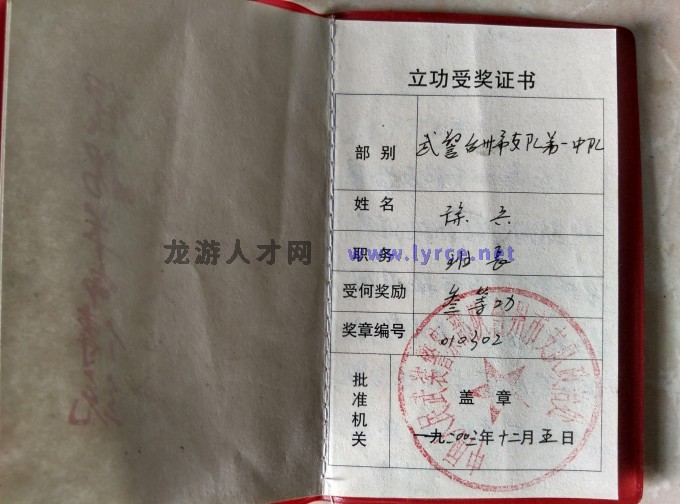 立功受奖证书
部别 武警台州市支队第一中队
姓名
龙游人才网 www.lyrcw.net
职务 班长
受何奖励 叁等功
奖章编号 010302
批准机关 盖章
一九二00二年十二月五日